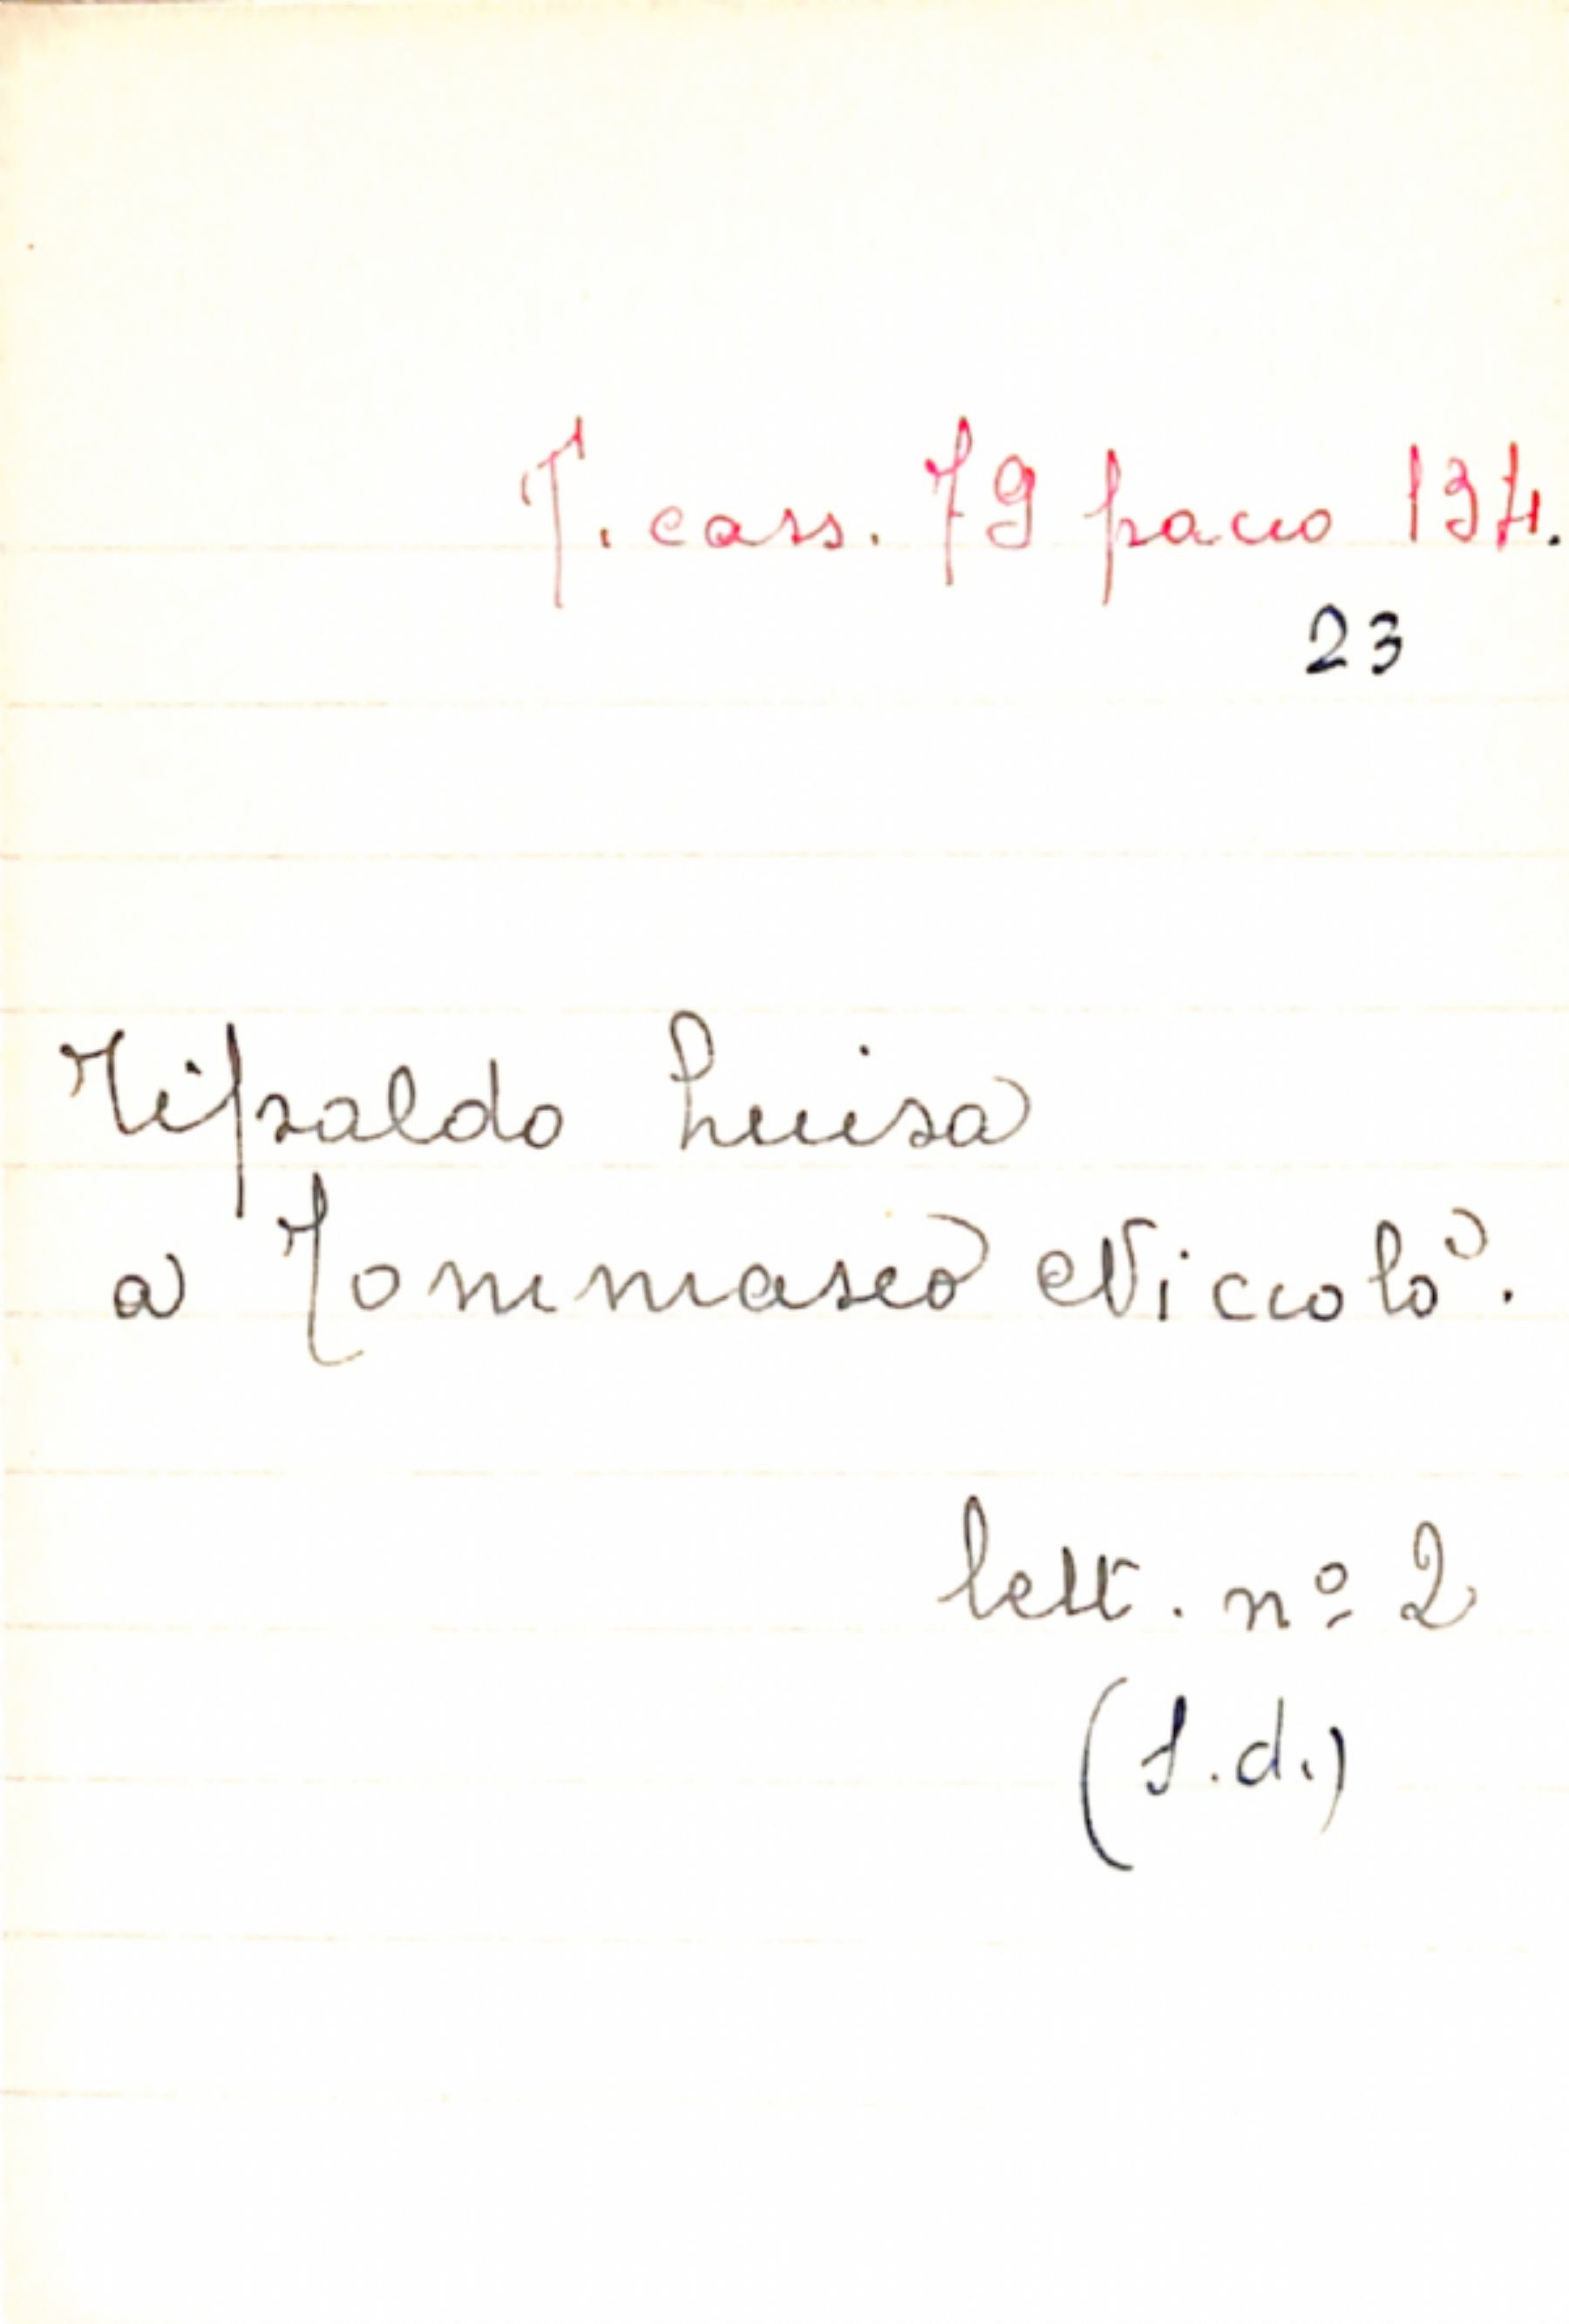 T. cass. 79 pacco 134.
23
Tipaldo Luisa
a Tommaseo Niccolò.
lett. nº 2
(s.d.)